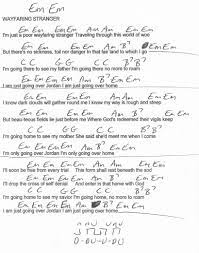 Em Em
WAYFARING STRANGER
Em Em Em Em Am Am Em Em
I'm just a poor wayfaring stranger Traveling through this world of woe
Em Em Em Em Am B7 Em Em
But there's no sickness, toil nor danger in that fair land to which I go
C C G G C C B7 B7
I'm going there to see my father I'm going there no more to roam
Em Em Em Em Am B7 Em Em
I am just going over Jordan I am just going over home
Em Em Em Em Am Am Em Em
I know dark clouds will gather round me I know my way is rough and steep
Em Em Em Em Am B7 Em Em
But beauteous fields lie just before me Where God's redeemed their vigils keep
C C G G C C B7 B7
I'm going home to see my mother She said she'd meet me when I come
Em Em Em Em Am B7 Em Em
I am only going over Jordan I'm only going over home
Em Em Em Em Am Am Em Em
I'll soon be free from every trial This form shall rest beneath the sod
Em Em Em Em Am B7 Em Em
I'll drop the cross of self denial And enter in that home with God
C C G G C C B7 B7
I'm going home to see my savior I'm going home, no more to roam
Em Em Em Em Am B7 Em Em
I am just going over Jordan I am just going over home
D-DU-U-DU